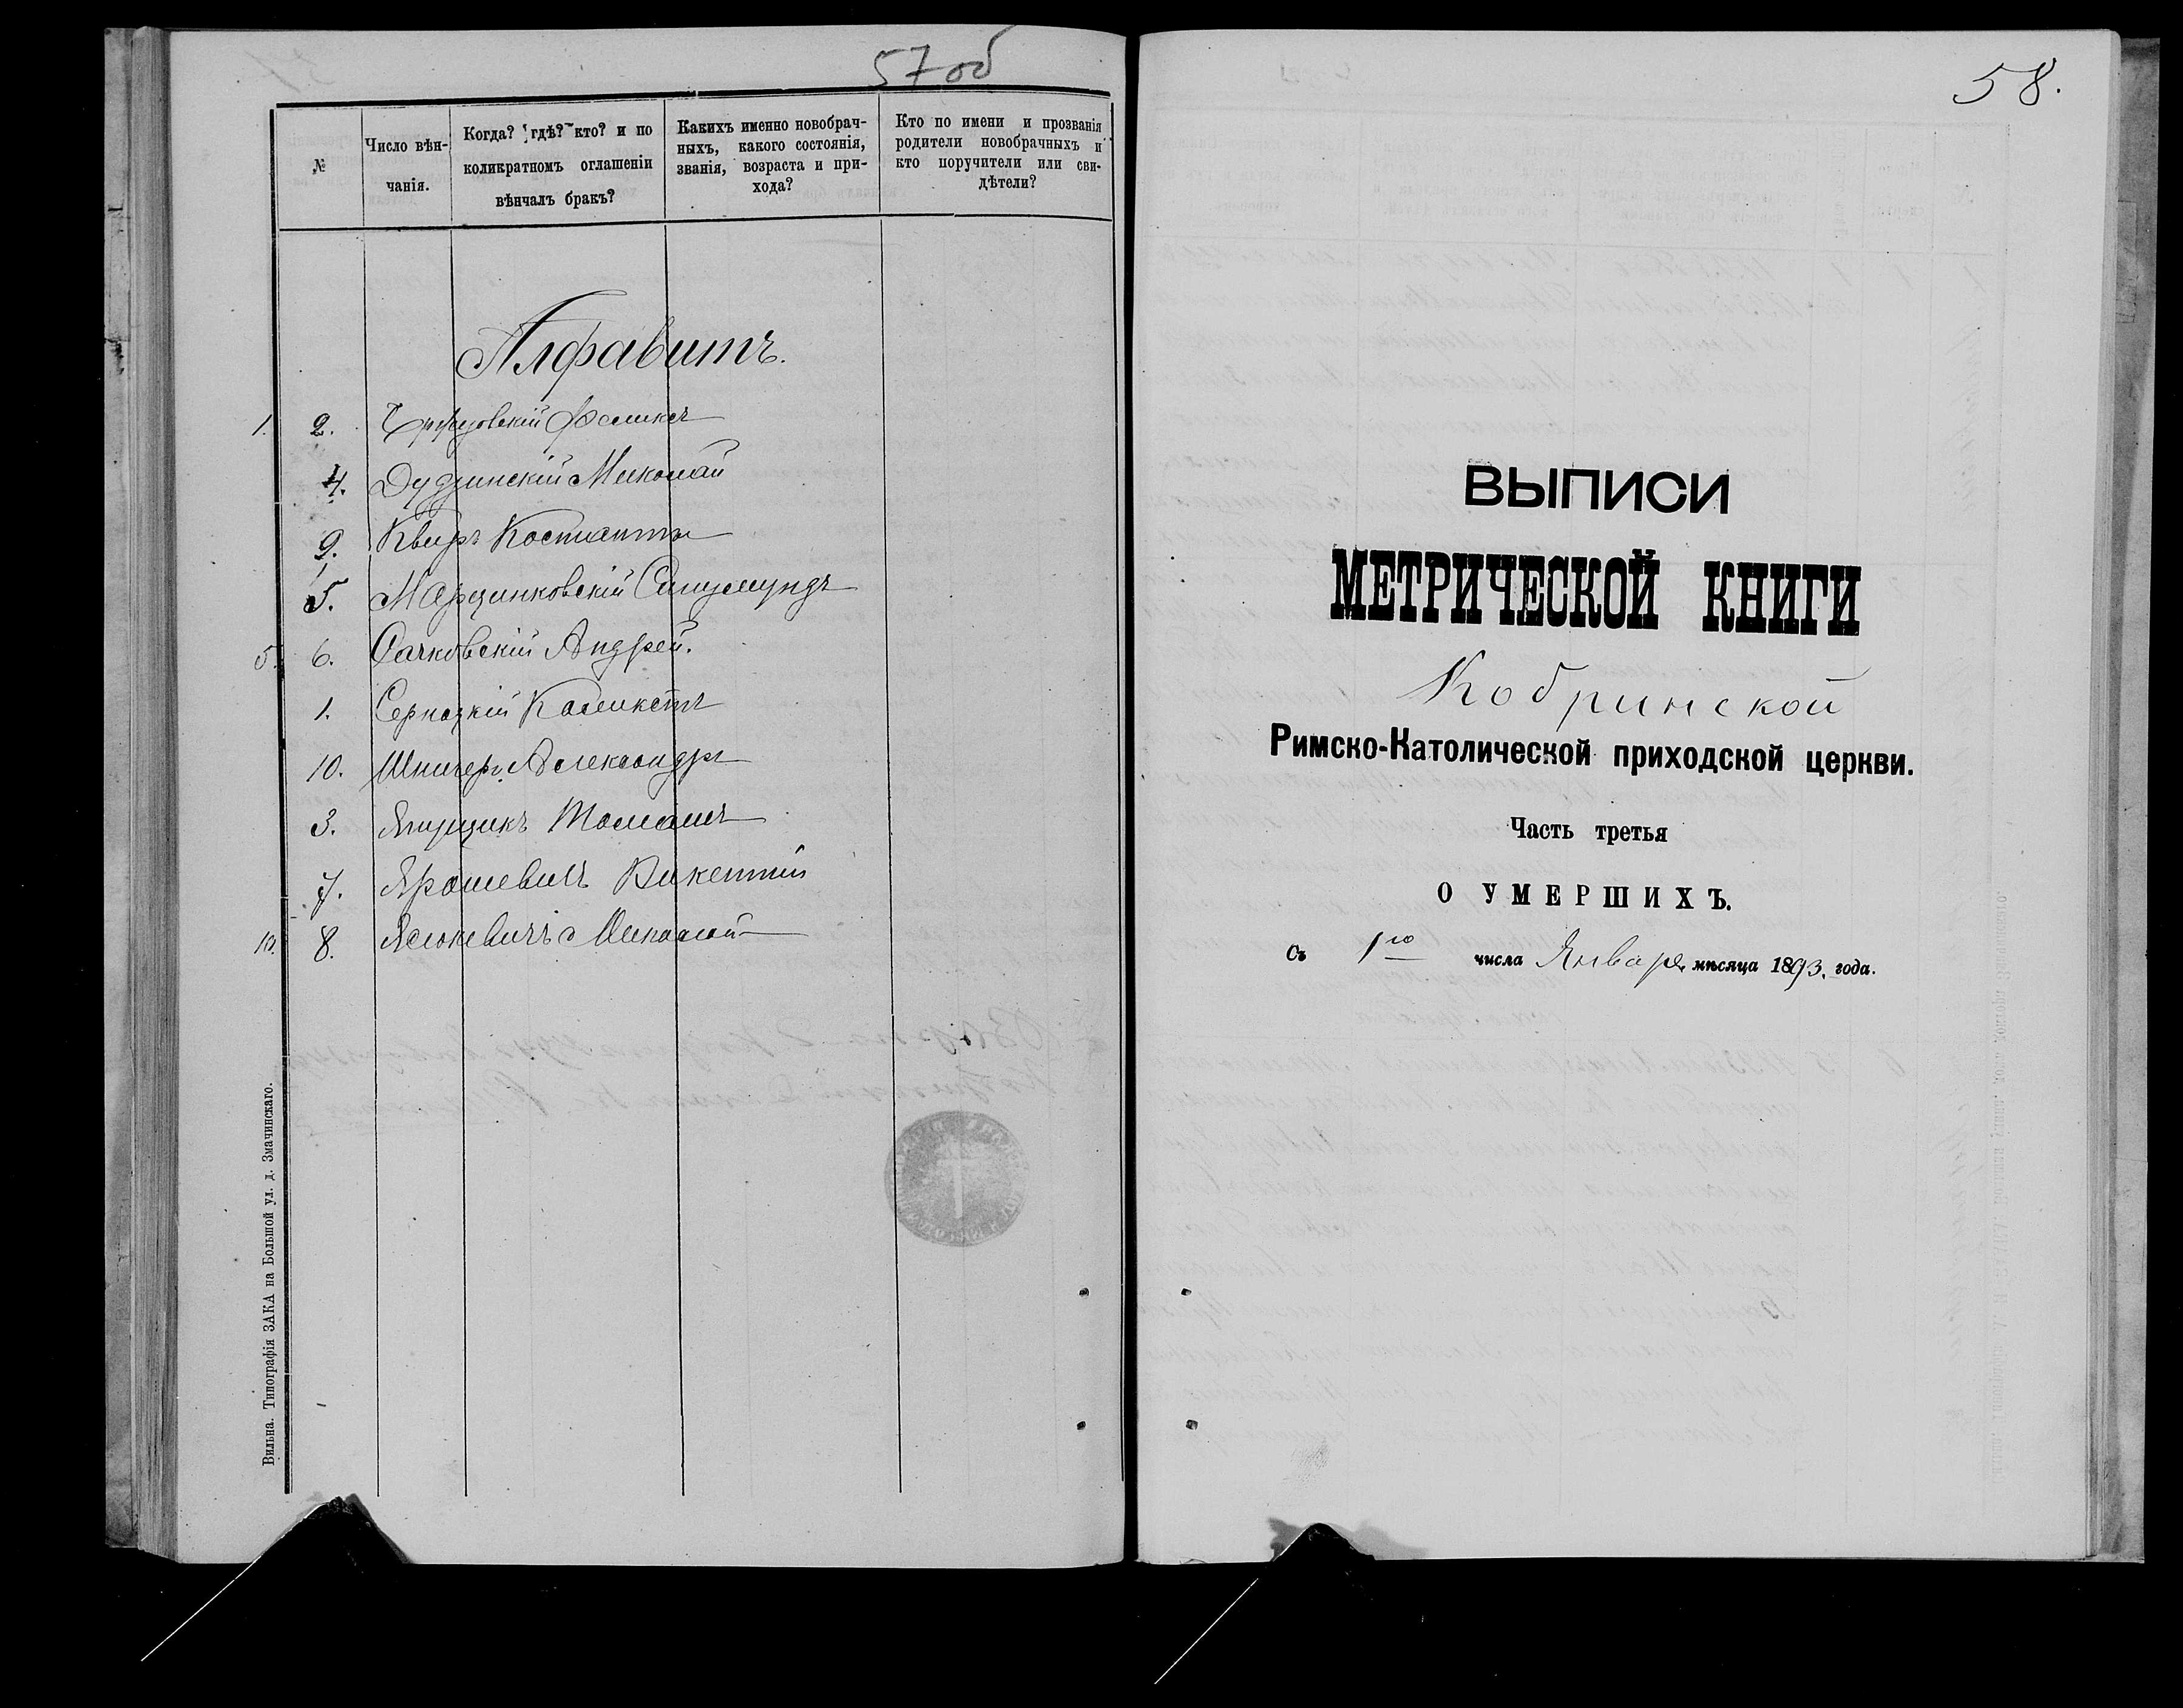 57 об
№
Число вѣн-
чанія.
Когда? гдѣ? кто? и по
коликратномъ оглашеніи
вѣнчалъ бракъ?
Какихъ именно новобрач-
ныхъ, какого состоянія,
званія, возраста и при-
хода?
Кто по имени и прозванія
родители новобрачныхъ и
кто поручители или сви-
дѣтели?
Алфавитъ.
1. 2. Феликсъ
4. Дудзинскій Миколай
9. Квиръ
5. Марцинковскій Сигизмундъ
5. 6. Сачковскій Андрей.
1. Каликстъ
10. Александръ
3. Томашъ
7. Ярошевичъ Викентій
10. 8. Яськевичъ Миколай
Вильна. Типографія ЗАКА на Большой ул. д. Змачинскаго.
58.
ВЫПИСИ
МЕТРИЧЕСКОЙ КНИГИ
Кобринской
Римско-Католической приходской церкви.
Часть третья
О УМЕРШИХЪ.
Съ 1го числа Января мѣсяца 1893. года.